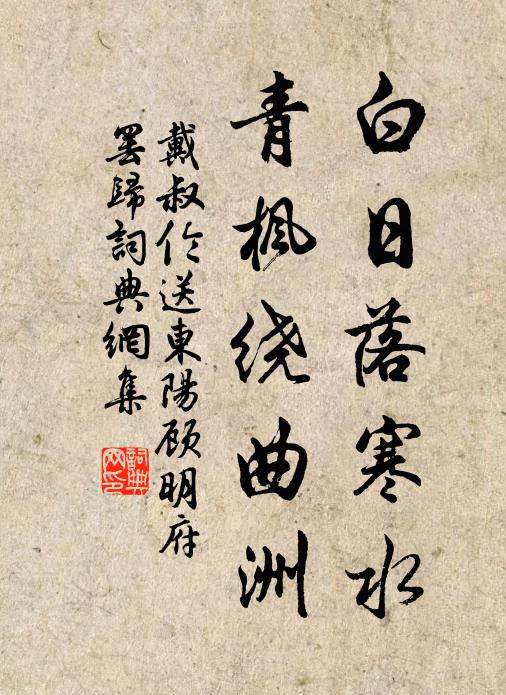 白日落寒水
青枫绕曲洲
戴叔伦送東陽顾明府
罢歸詞典網集
詞典網印